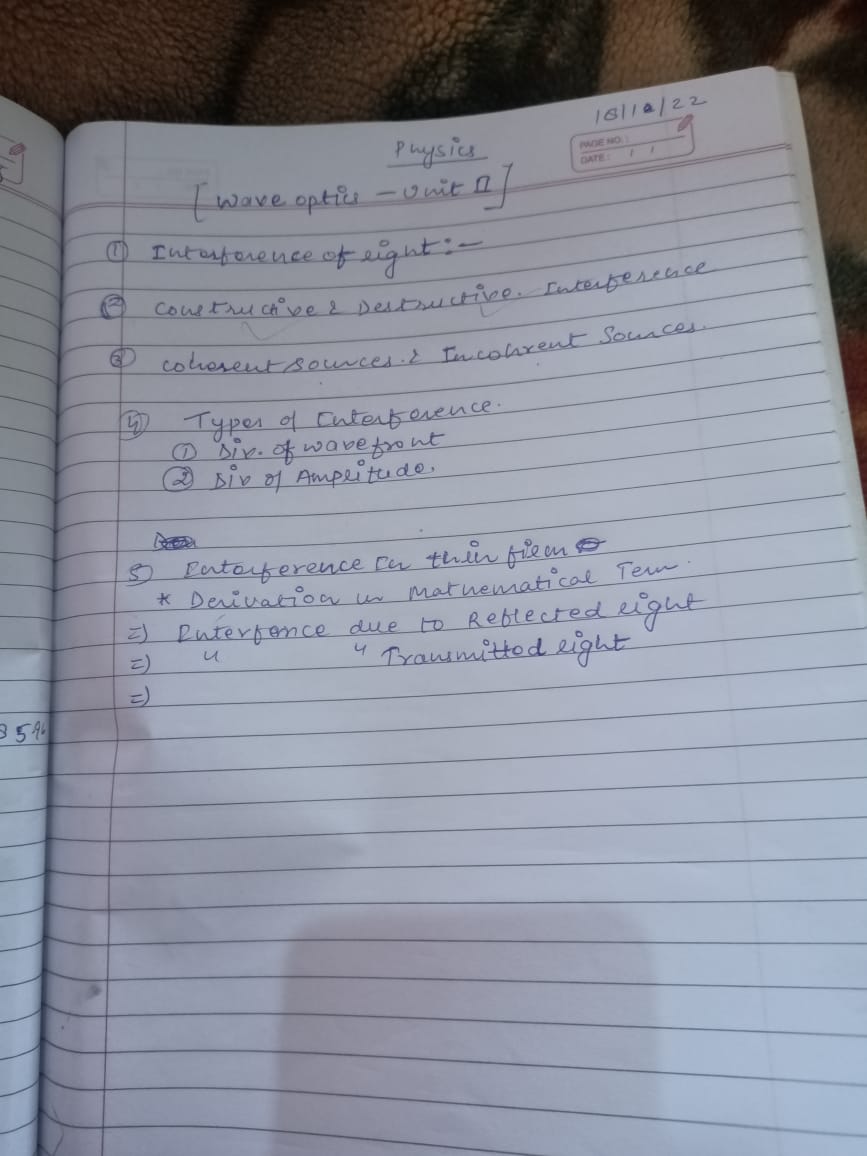 16/12/22
PAGE NO.:
DATE: / /
Physics
[Wave optics - Unit II]
① Interference of light :-
② Constructive & Destructive. Interference
③ coherent sources. & Incohrent Sources.
④ Types of Interference.
① Div. of wavefront
② Div of Amplitude.
5) Interference in thin film
* Derivation in Mathematical Term.
=) Interfence due to Reflected light
=) " " Transmitted light
=)